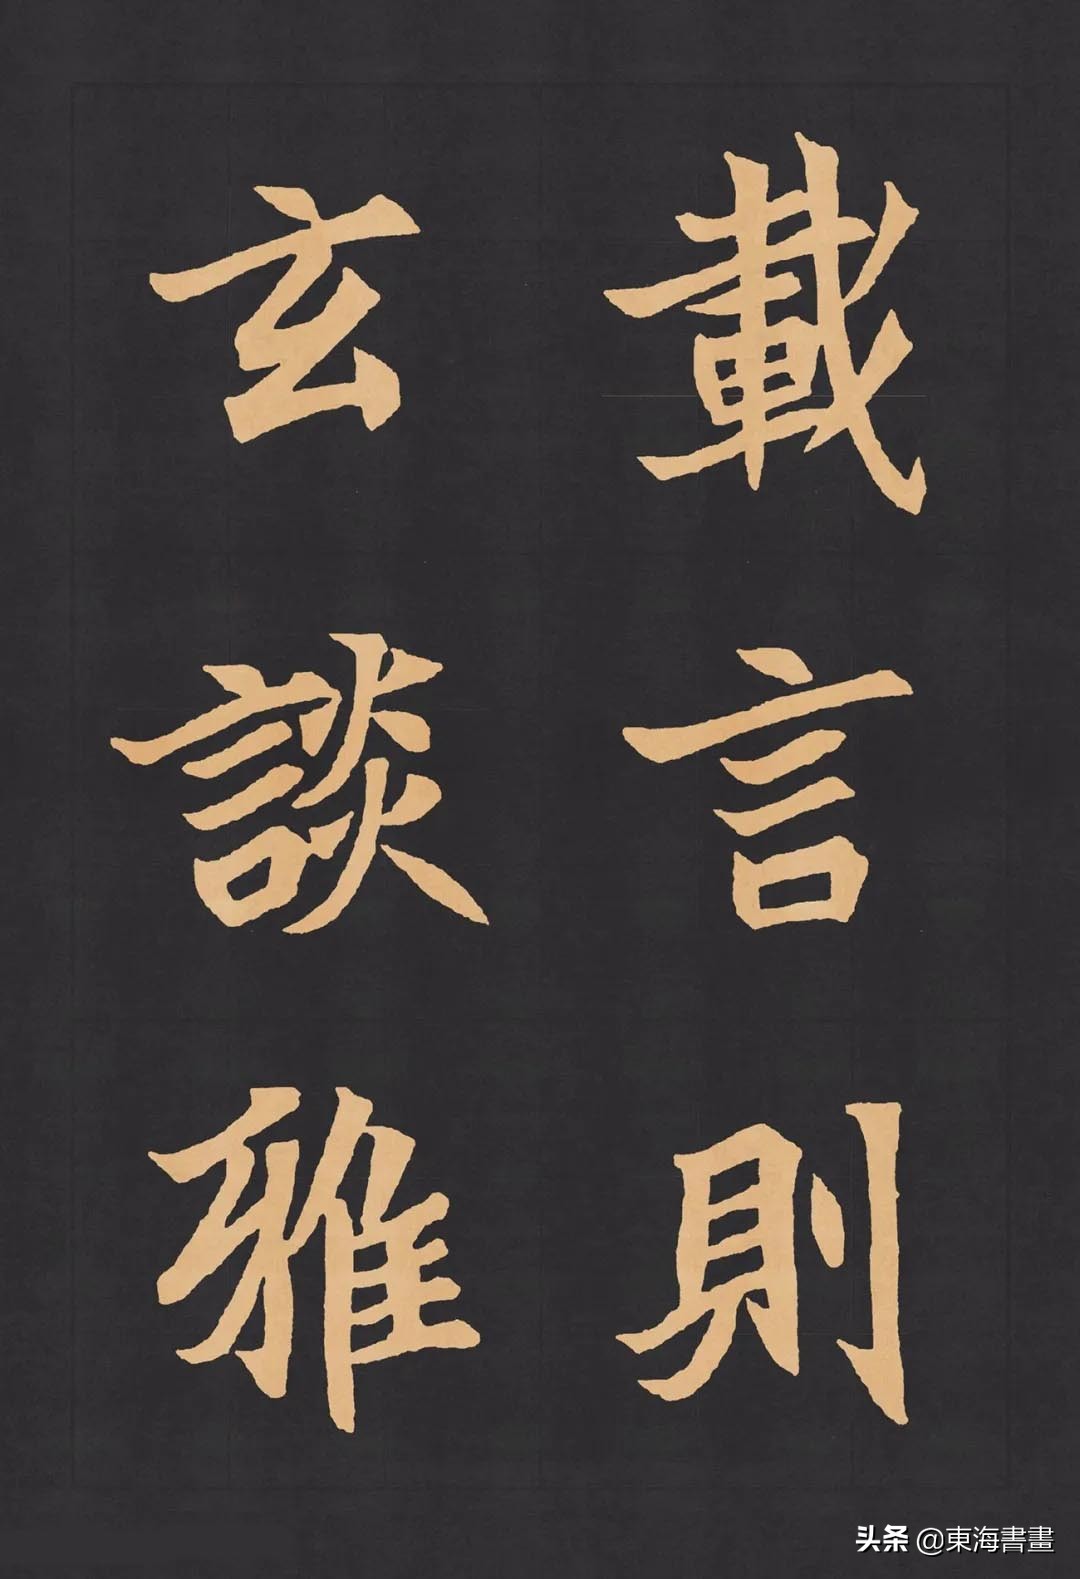 載言則
玄談雅
头条 @東海書畫